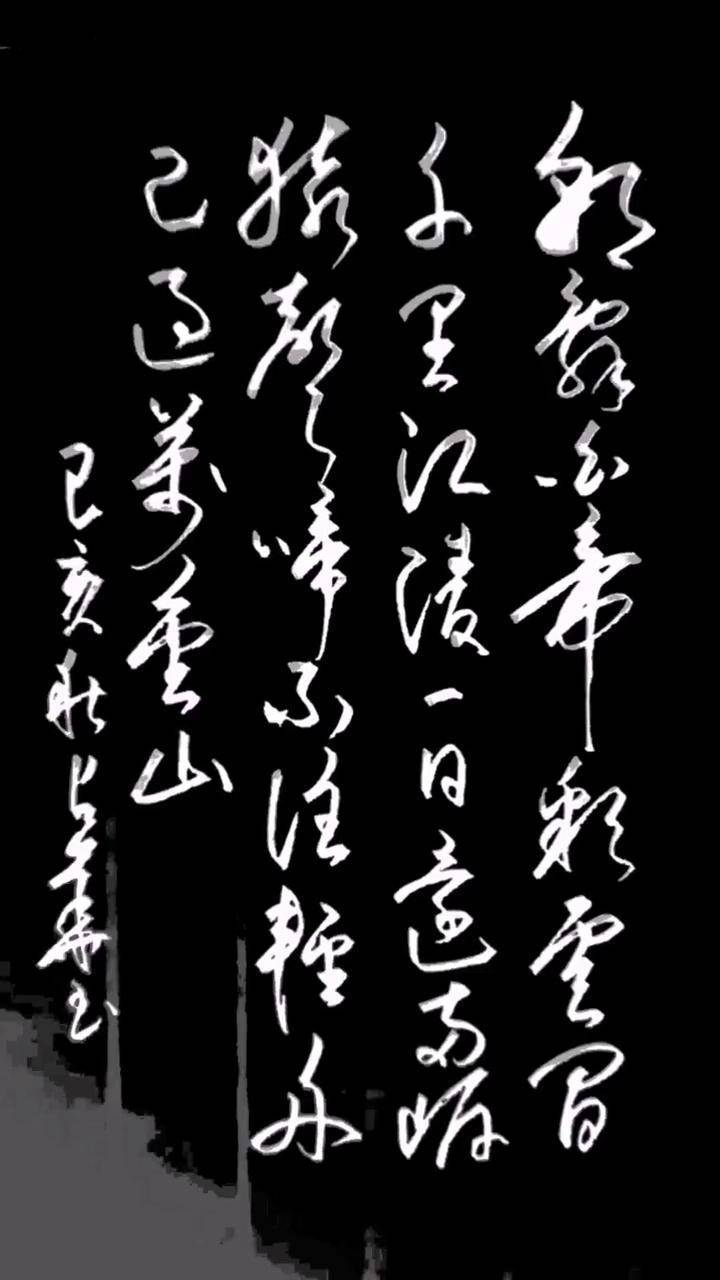 朝辞白帝彩雲間
千里江陵一日還两岸
猿聲啼不住輕舟
已過萬重山
己亥秋